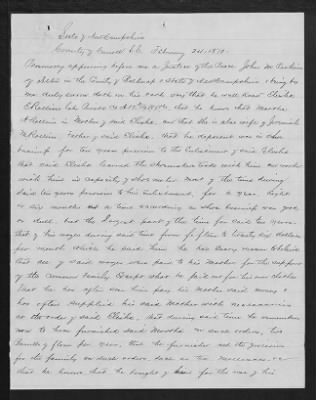 State of New Hampshire
County of Carroll S.S. February 24. 1870.
Personally appearing before me a Justice of the Peace John M. Perkins
of in the County of Belknap & State of New Hampshire & being by
me duly sworn doth on his oath say that he well knew Elisha
E. Rollins late Co. that he knows that Martha
A. Rollins is Mother of said Elisha, and that she is also wife of Jeremiah
M. Rollins Father of said Elisha. That he deponent was in shoe
business for ten years previous to the Enlistment of said Elisha
that said Elisha learned the Shoemakers trade with him and work
with him in capacity of shoemaker most of the time during
said ten years previous to his enlistment, for a year, eight
or six months at a time according as shoe business was good
or dull, but the largest part of the time for said ten years.
that of his wages during said time from fifteen to twenty six dollars
per month which he paid him he has every reason to believe
that all of said wages were paid to his Mother for the support
of the common family except what he paid out for his own clothes
That he has often seen him pay his Mother said money &
has often supplied his said Mother with necessaries
at the order of said Elisha. That during said time he remembers
now to have furnished said Martha on such orders, two
barrels of flour per year, that he furnished all the groceries
for the family on such orders, such as Tea Molasses &c
that he knows that he bought of him for the use of his